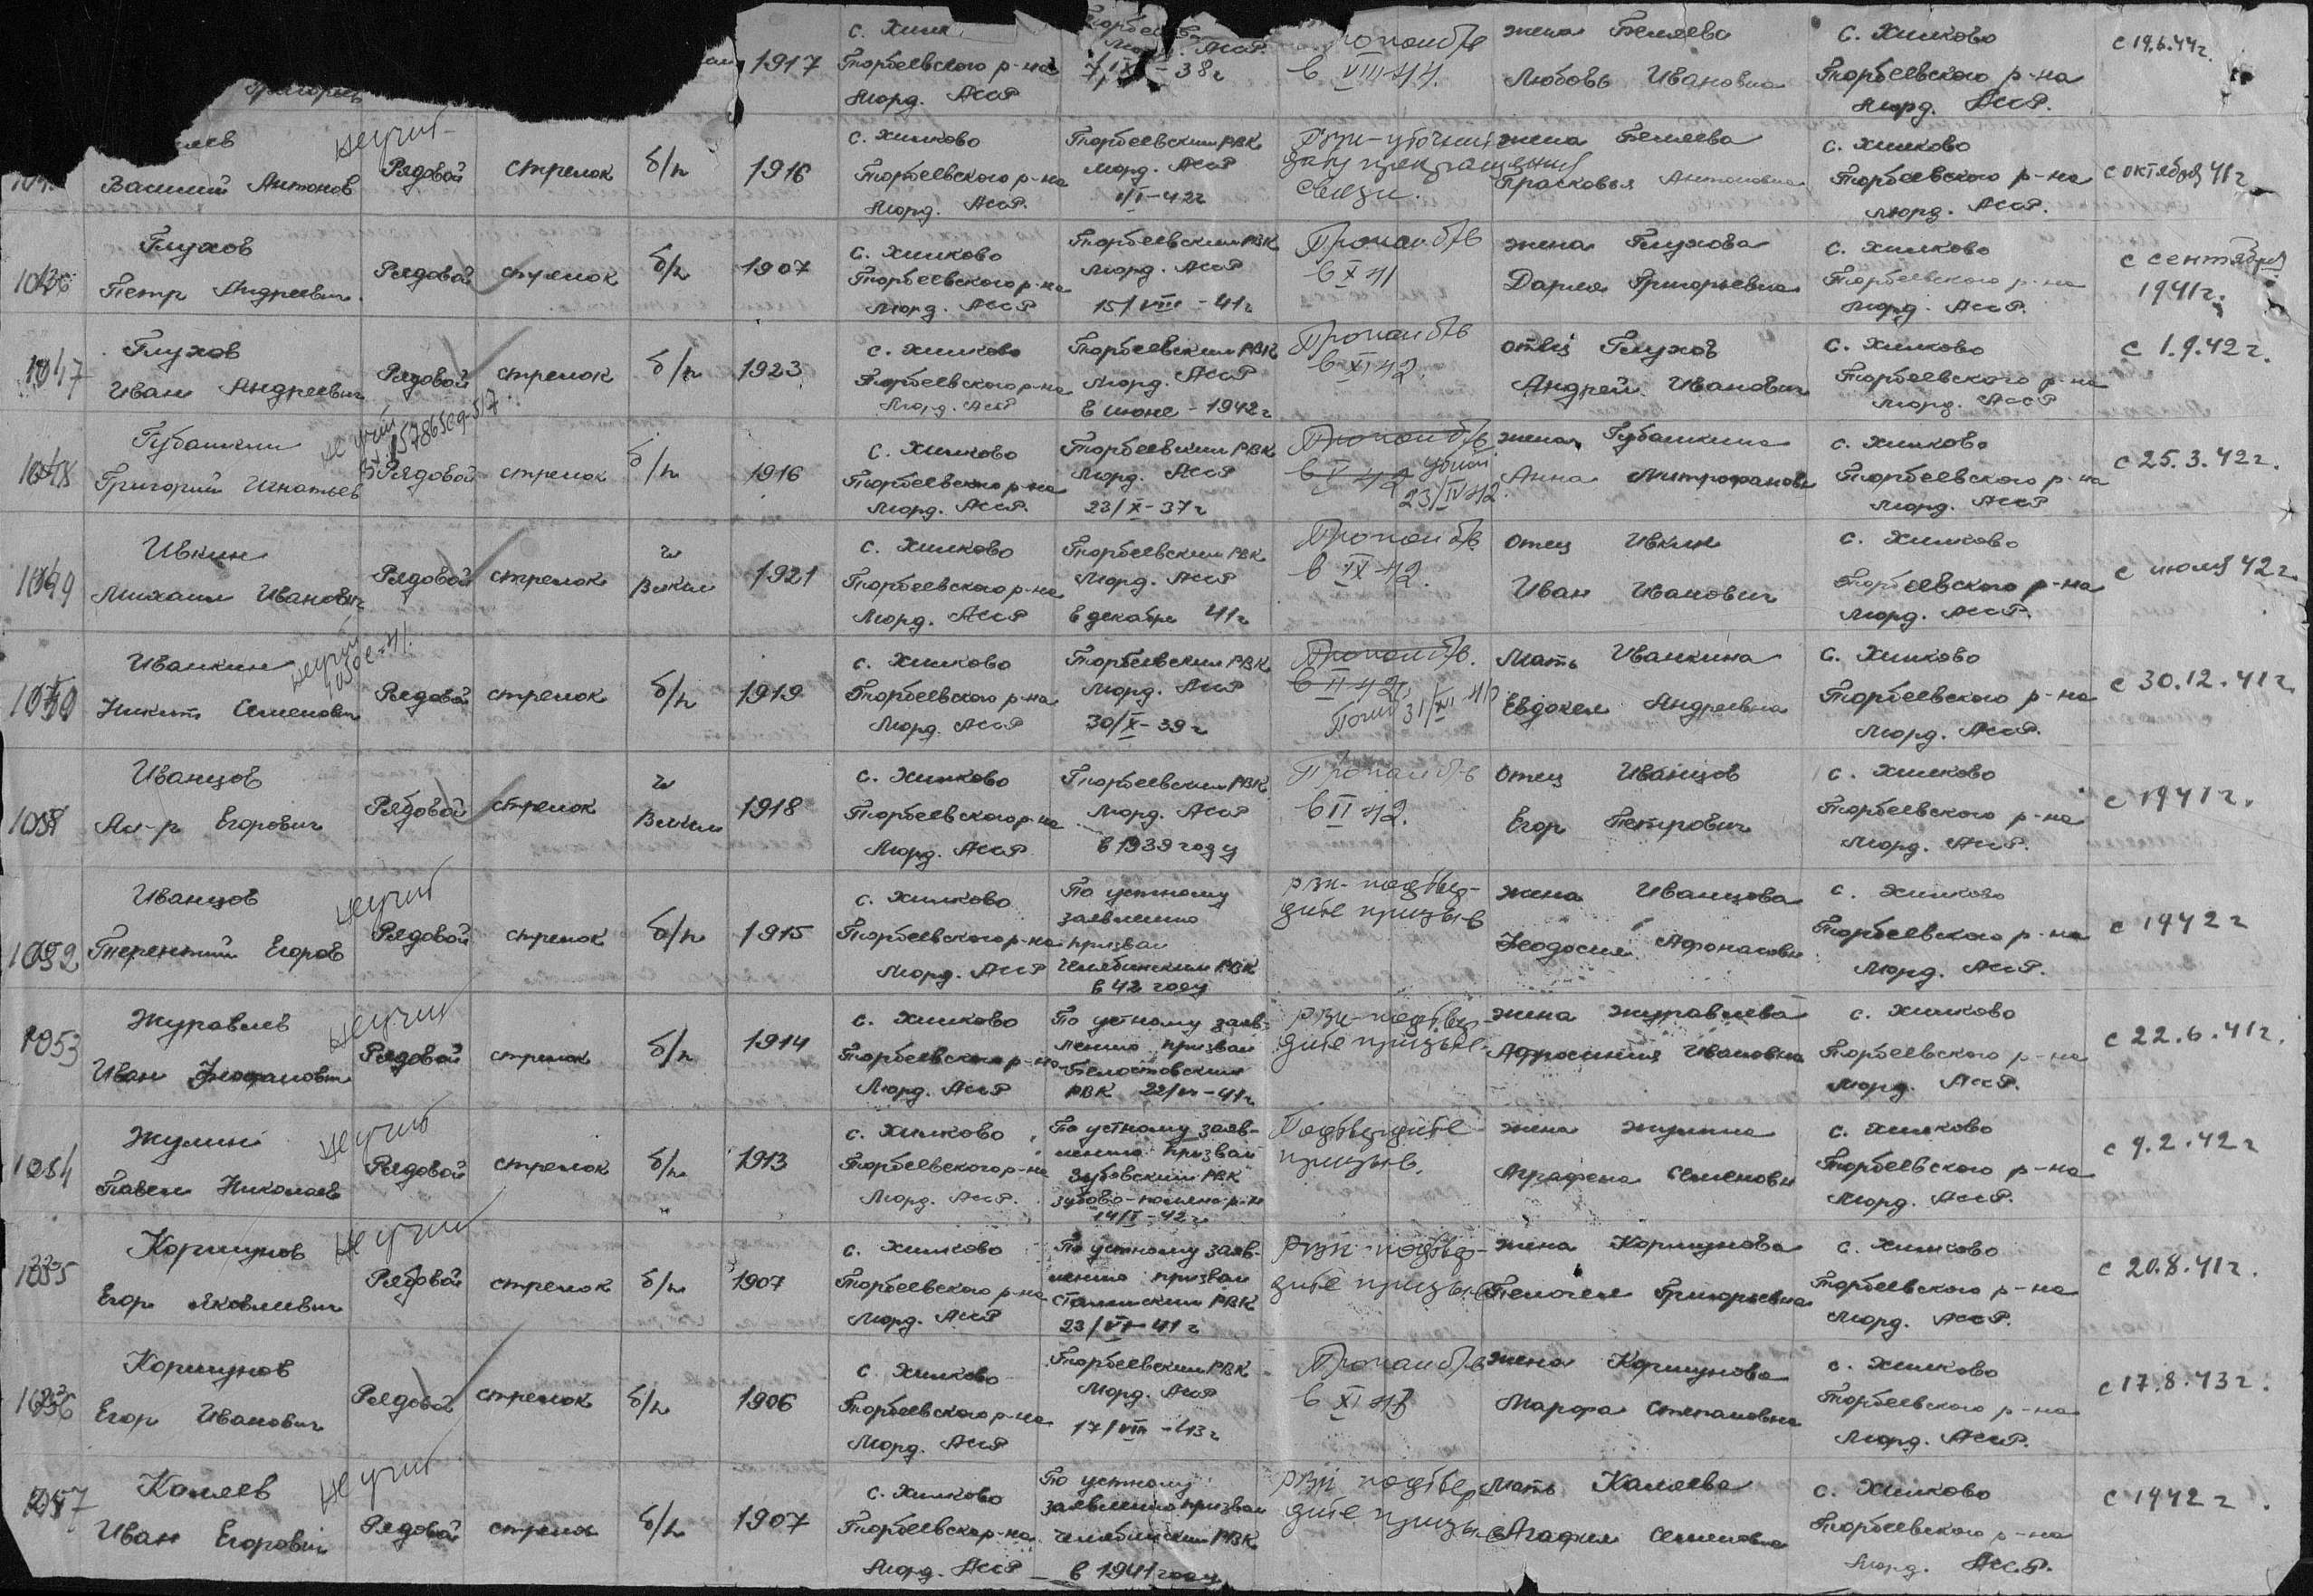 1917
с. Хилк
Торбеевского р-на
Морд. АССР
Морд. АССР.
IX - 38 г
в VIII-44.
жена Беляева
Любовь Ивановна
с. Хилково
Торбеевского р-на
Морд. АССР.
с 19.6.44 г.
Василий Антонов
не учит
Рядовой
стрелок
б/п
1916
с. Хилково
Торбеевского р-на
Морд. АССР.
Торбеевским РВК
Морд. АССР
1/I-42 г
РВК-уточнит
дату прекращения
связи.
жена Беляева
Прасковья Антоновна
с. Хилково
Торбеевского р-на
Морд. АССР.
с октября 41 г
1046
Глухов
Петр Андреевич
Рядовой
стрелок
б/п
1907
с. Хилково
Торбеевского р-на
Морд. АССР
Торбеевским РВК
Морд. АССР
15/VIII-41 г
Пропал б/в
в X 41
жена Глухова
Дарья Григорьевна
с. Хилково
Торбеевского р-на
Морд. АССР.
с сентября
1941 г.
1047
Глухов
Иван Андреевич
Рядовой
стрелок
б/п
1923
с. Хилково
Торбеевского р-на
Морд. АССР
Торбеевским РВК
Морд. АССР
в июне - 1942 г
Пропал б/в
в XI 42.
отец Глухов
Андрей Иванович
с. Хилково
Торбеевского р-на
Морд. АССР
с 1.9.42 г.
1048
Губашкин
Григорий Игнатьев
не учит
Рядовой
стрелок
б/п
1916
с. Хилково
Торбеевского р-на
Морд. АССР.
Торбеевским РВК
Морд. АССР
23/X-37 г
Пропал б/в
убит
23/IV 42.
жена Губашкина
Анна Митрофанов
с. Хилково
Торбеевского р-на
Морд. АССР
с 25.3.42 г.
1049
Ивкин
Михаил Иванович
Рядовой
стрелок
чл
ВЛКСМ
1921
с. Хилково
Торбеевского р-на
Морд. АССР
Торбеевским РВК
Морд. АССР
в декабре 41 г
Пропал б/в.
в IX-42.
отец Ивкин
Иван Иванович
с. Хилково
Торбеевского р-на
Морд. АССР.
с июля 42 г.
1050
Ивашкин
Никита Семенович
не учит
Рядовой
стрелок
б/п
1919
с. Хилково
Торбеевского р-на
Морд. АССР
Торбеевским РВК
Морд. АССР
30/X-39 г
Пропал б/в.
в II-42 г.
Погиб 31/XII 41
Мать Ивашкина
Евдокея Андреевна
с. Хилково
Торбеевского р-на
Морд. АССР.
с 30.12.41 г.
1051
Иванцов
Ал-р Егорович
Рядовой
стрелок
чл
ВЛКСМ
1918
с. Хилково
Торбеевского р-на
Морд. АССР
Торбеевским РВК
Морд. АССР
в 1939 году
Пропал б/в
в II 42.
отец Иванцов
Егор Петрович
с. Хилково
Торбеевского р-на
Морд. АССР.
с 1941 г.
1052
Иванцов
Терентий Егоров
не учит
Рядовой
стрелок
б/п
1915
с. Хилково
Торбеевского р-на
Морд. АССР
По устному
заявлению
призван
Челябинским РВК
в 42 году
РВК-подтвер-
дите призыв
жена Иванцова
Феодосия Афонасовн
с. Хилково
Торбеевского р-на
Морд. АССР.
с 1942 г
1053
Журавлев
Иван Феофанович
не учит
Рядовой
стрелок
б/п
1914
с. Хилково
Торбеевского р-на
Морд. АССР
По устному заяв-
лению призван
РВК 22/VI-41 г
РВК-подтвер-
дите призыв.
жена Журавлева
Афросиния Ивановна
с. Хилково
Торбеевского р-на
Морд. АССР.
с 22.6.41 г.
1054
Жулин
Павел Николаев
не учит
Рядовой
стрелок
б/п
1913
с. Хилково
Торбеевского р-на
Морд. АССР.
По устному заяв-
лению призван
Зубовским РВК
Зубово-полянс. р-н
14/I-42 г
Подтвердите
призыв.
жена Жулина
Аграфена Семеновн
с. Хилково
Торбеевского р-на
Морд. АССР.
с 9.2.42 г
1055
Коршунов
Егор Яковлевич
не учит
Рядовой
стрелок
б/п
1907
с. Хилково
Торбеевского р-на
Морд. АССР
По устному заяв-
лению призван
Сталинским РВК
23/VI-41 г
РВК-подтвер-
дите призыв
жена Коршунова
Пелагея Григорьевна
с. Хилково
Торбеевского р-на
Морд. АССР.
с 20.8.41 г.
1056
Коршунов
Егор Иванович
Рядовой
стрелок
б/п
1906
с. Хилково
Торбеевского р-на
Морд. АССР
Торбеевским РВК
Морд. АССР
17/VIII-43 г
Пропал б/в
в XI 43
жена Коршунова
Марфа Степановна
с. Хилково
Торбеевского р-на
Морд. АССР.
с 17.8.43 г.
1057
Каляев
Иван Егорович
не учит
Рядовой
стрелок
б/п
1907
с. Хилково
Торбеевского р-на
Морд. АССР
По устному
заявлению призван
Челябинским РВК
в 1941 году
РВК подтвер
дите призыв
Мать Каляева
Агафия Семеновна
с. Хилково
Торбеевского р-на
Морд. АССР.
с 1942 г.